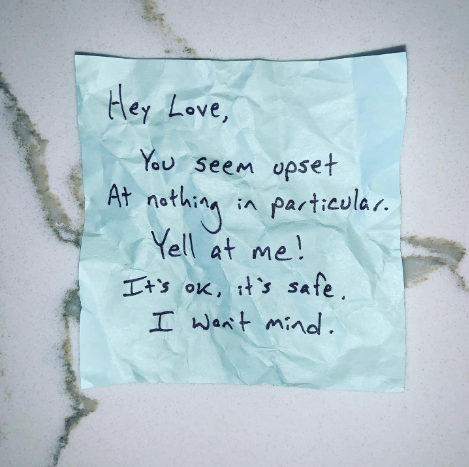 Hey Love,
You seem upset
At nothing in particular.
Yell at me!
It's ok, it's safe.
I won't mind.